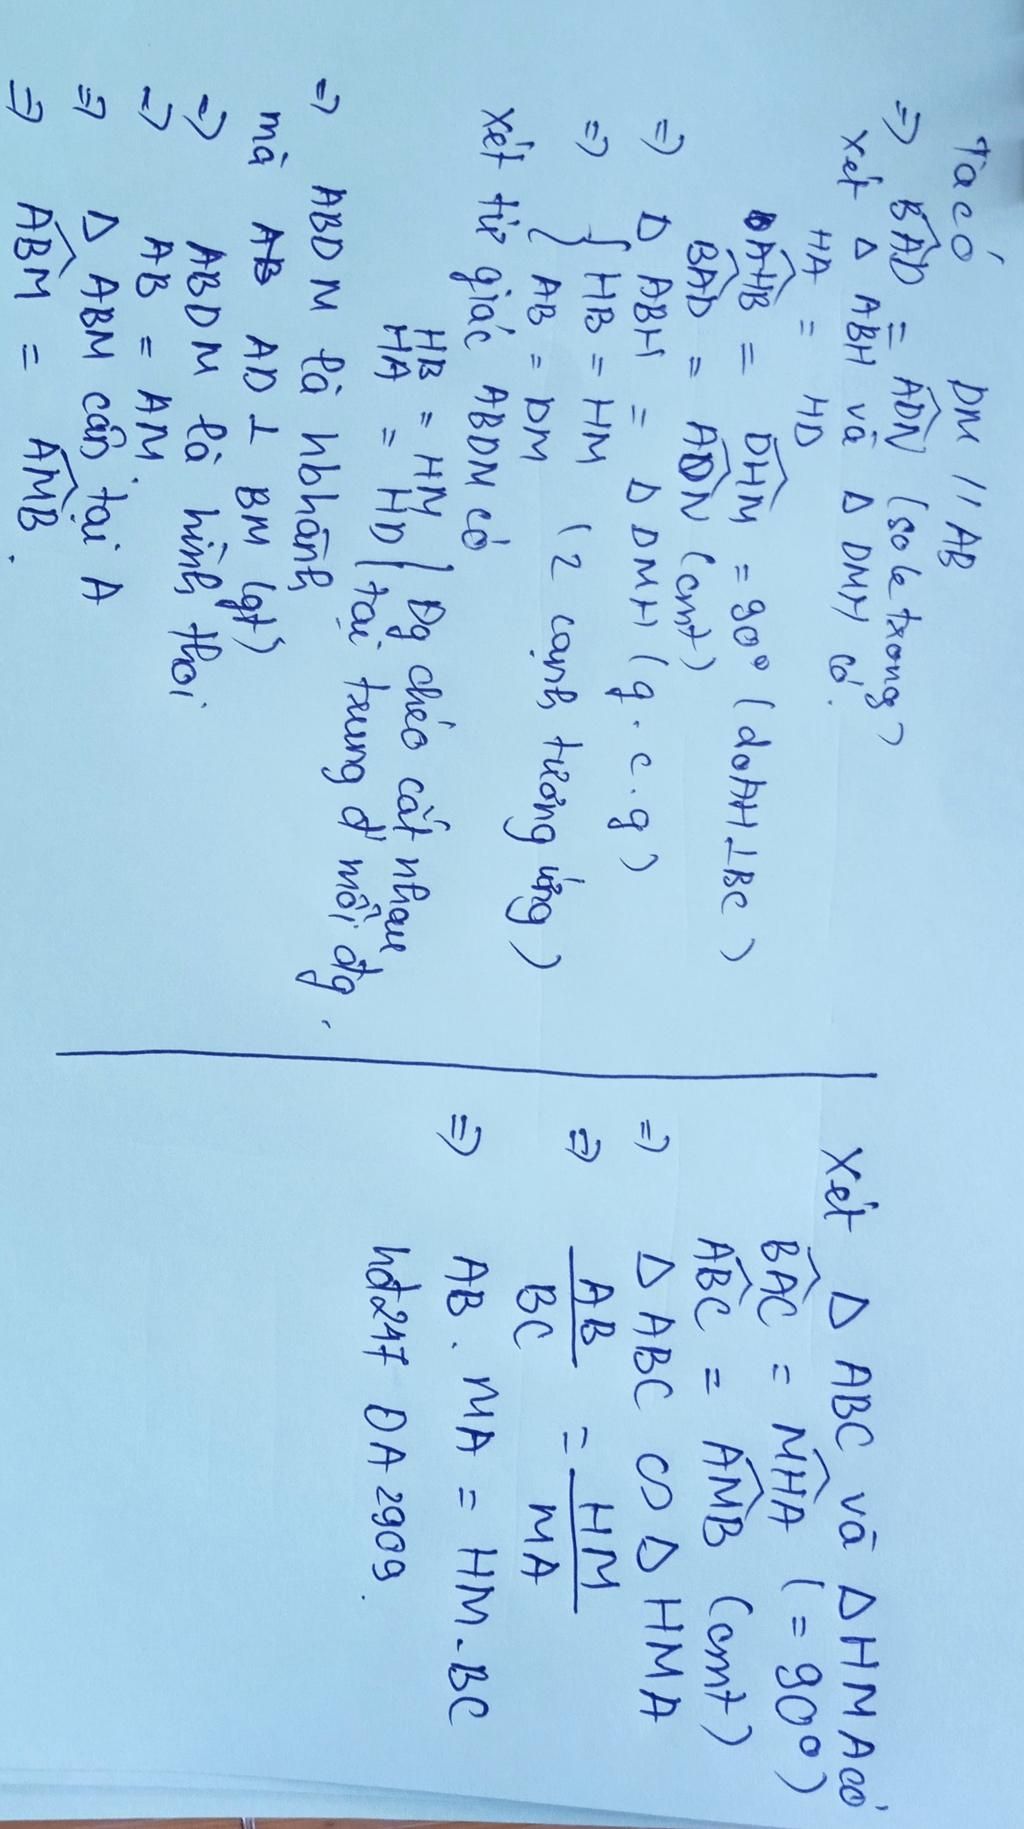 Ta có DM // AB
=> BAD = ADN (so le trong)
Xét Δ ABH và Δ DMH có.
HA = HD
AHB = DHM = 90° (do AH ⊥ BC)
BAD = ADN (cmt)
=> Δ ABH = Δ DMH (g.c.g)
=> { HB = HM
{ AB = DM (2 cạnh tương ứng)
Xét tứ giác ABDM có
HB = HM } Đg chéo cắt nhau
HA = HD } tại trung đ' mỗi đg.
=> ABDM là hbhành
mà AD ⊥ BM (gt)
=> ABDM là hình thoi
=> AB = AM.
=> Δ ABM cân tại A
=> ABM = AMB.
Xét Δ ABC và Δ HMA có
BAC = MHA (= 90°)
ABC = AMB (cmt)
=> Δ ABC ∽ Δ HMA
=> AB/BC = HM/MA
=> AB . MA = HM . BC
hđ247 DA 2909.